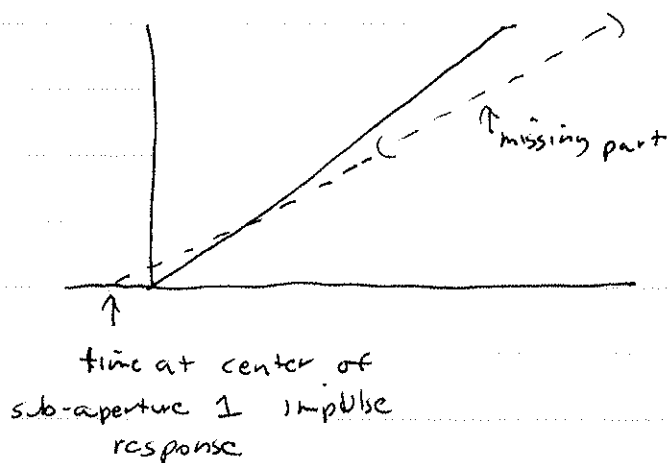 missing part
time at center of
sub-aperture 1 impulse
response